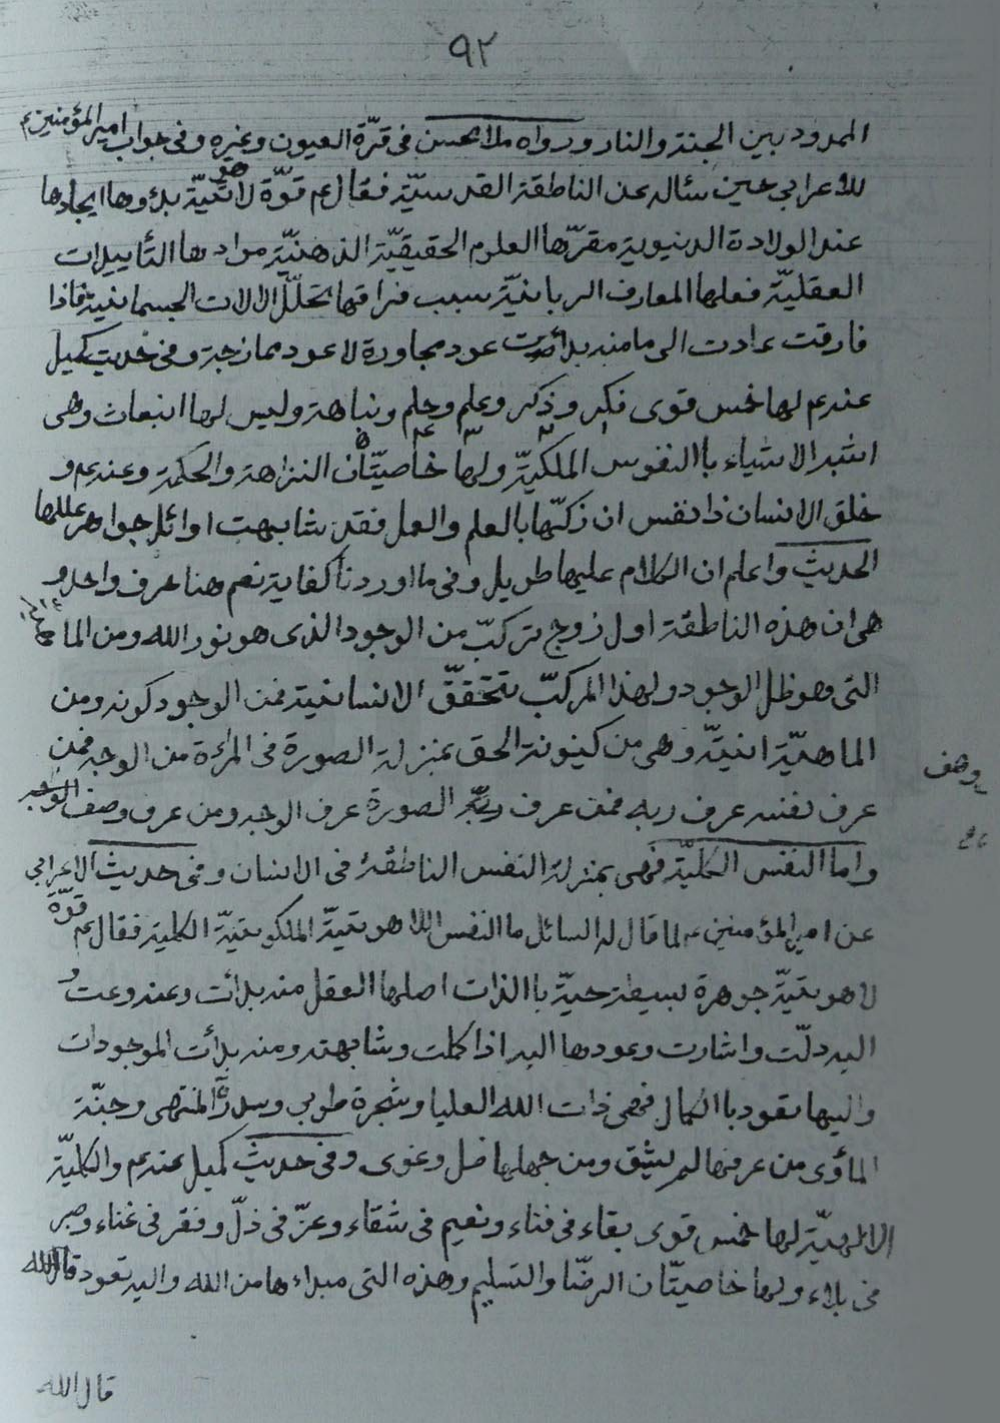 ٩٢
الممدود بين الجنة والنار ورواه ملا محسن فى قرّة العيون وغيره وفى جواب امير المؤمنين ع
للأعرابي حين سئاله عن الناطقة القدسيّة فقال ع م قوّة لاهوتيّة بدؤوها ايجادها
عند الولادة الدنيوية مقرّها العلوم الحقيقيّة الذهنيّة موادها التأييدات
العقليّة فعلها المعارف الربانيّة سبب فراقها تحلّل الالات الجسمانية فاذا
فارقت عادت الى ما منه بدأت عود مجاورة لا عود ممازجة وفى حديث كميل
عنه ع م لها خمس قوى فكر وذكر وعلم وحلم ونباهة وليس لها انبعاث وهى
اشبه الاشياء باالنفوس الملكيّة ولها خاصيّتان النزاهة والحكمة وعنه ع م و
خلق الانسان ذا نفس ان زكّها بالعلم والعمل فقد شابهت اوائل جواهر عللها
الحديث واعلم ان الكلام عليها طويل وفى ما اوردنا كفاية نعم هنا حرف واحد و
هى ان هذه الناطقة اول زوج تركّب من الوجود الذى هو نور الله ومن الماهية
التى هو ظل الوجود ولهذا المركّب تتحقّق الانسانية فمن الوجود كونه ومن
الماهيّة انيّته وهى من كينونة الحق بمنزلة الصورة فى المراءة من الوجه فمن
وصف
عرف نفسه عرف ربه فمن عرف الصورة عرف الوجه ومن عرف وصف الوجه
واما النفس الكليّة فهى بمنزلة النفس الناطقة فى الانسان وفى حديث الاعرابي
عن امير المؤمنين ع لما قال له السائل ما النفس اللاهوتيّة الملكوتيّة الكلية فقال ع م قوّة
لاهوتيّة جوهرة بسيطة حيّة باالذات اصلها العقل منه بدأت وعنه وعت و
اليه دلّت واشارت وعودها اليه اذا كملت وشابهته ومنه بدأت الموجودات
واليها تعود باالكمال فهى ذات الله العليا وشجرة طوبى وسدرة المنتهى وجنّة
المأوى من عرفها لم يشق ومن جهلها ضل وغوى وفى حديث كميل عنه ع م والكليّة
الالهيّة لها خمس قوى بقاء فى فناء ونعيم فى شقاء وعزّ فى ذلّ وفقر فى غناء وصبر
فى بلاء ولها خاصيّتان الرضّا والتسليم وهذه التى مبداءها من الله واليه تعود قال الله
قال الله